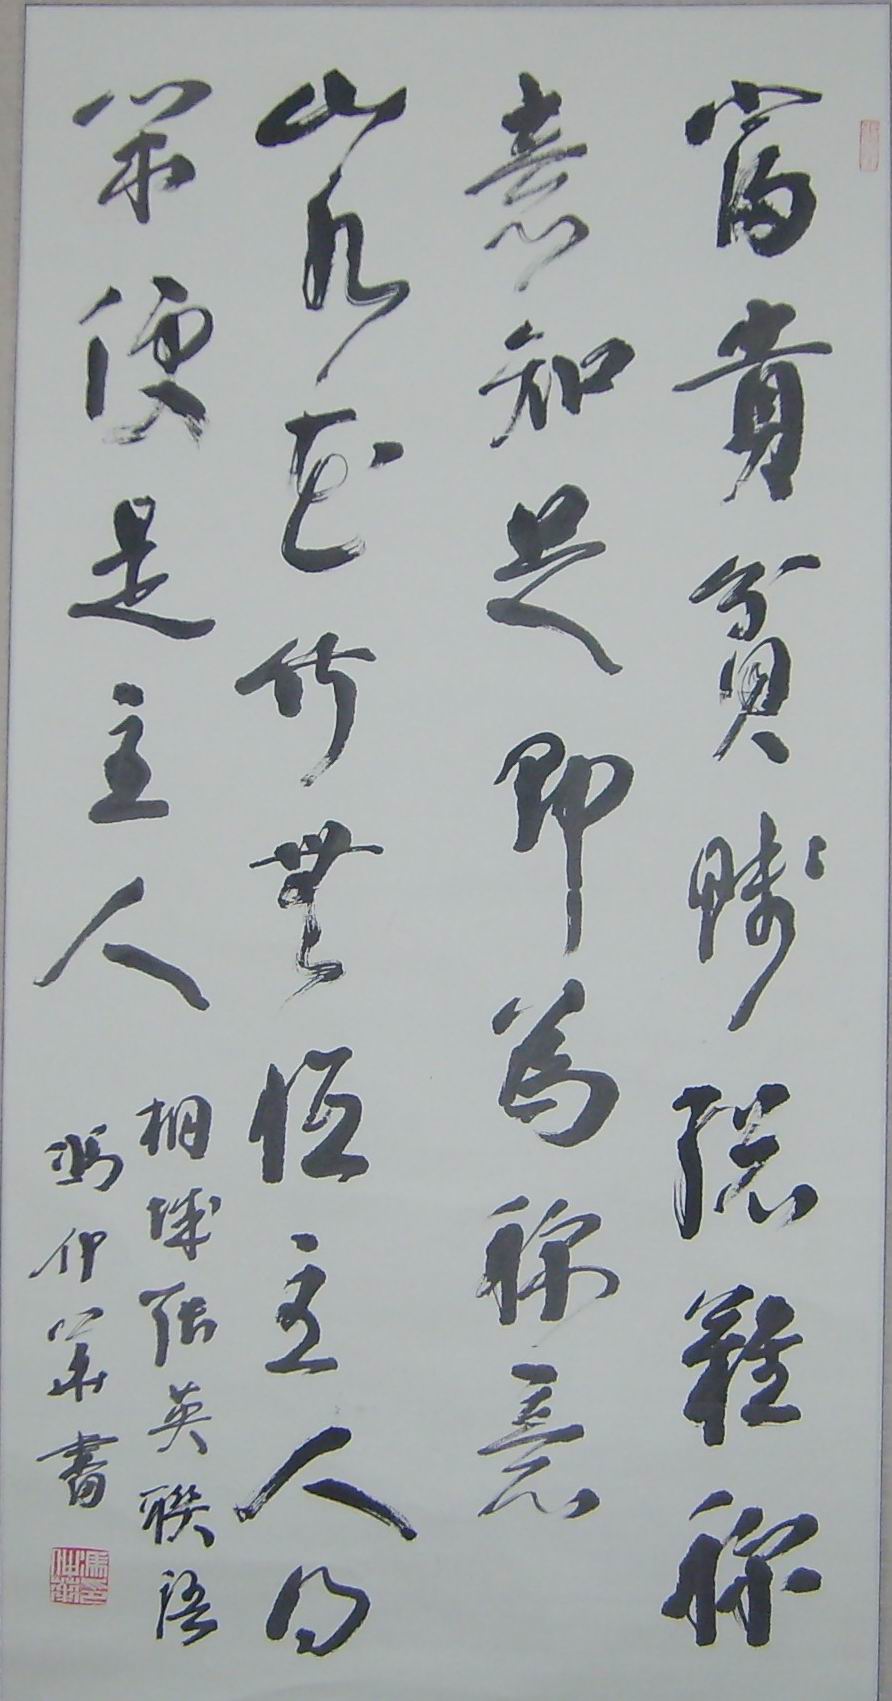 富貴貧賤總難稱
意知足即為稱意
山水花竹無恒主人得
閑便是主人
桐城張英聯語
馮仲華書